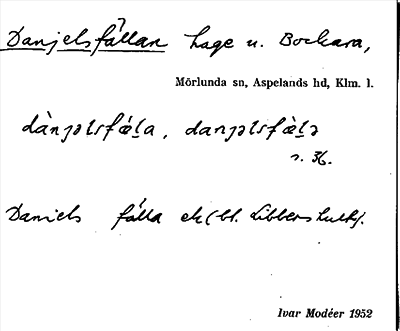 Danjelsfållan hage u. Bockara,
Mörlunda sn, Aspelands hd, Klm. l.
dànȷəlsfǽḻa, danȷəlsfæ̀ḻə
s. 36.
Daniels fålla ek (bl.
Ivar Modéer 1952